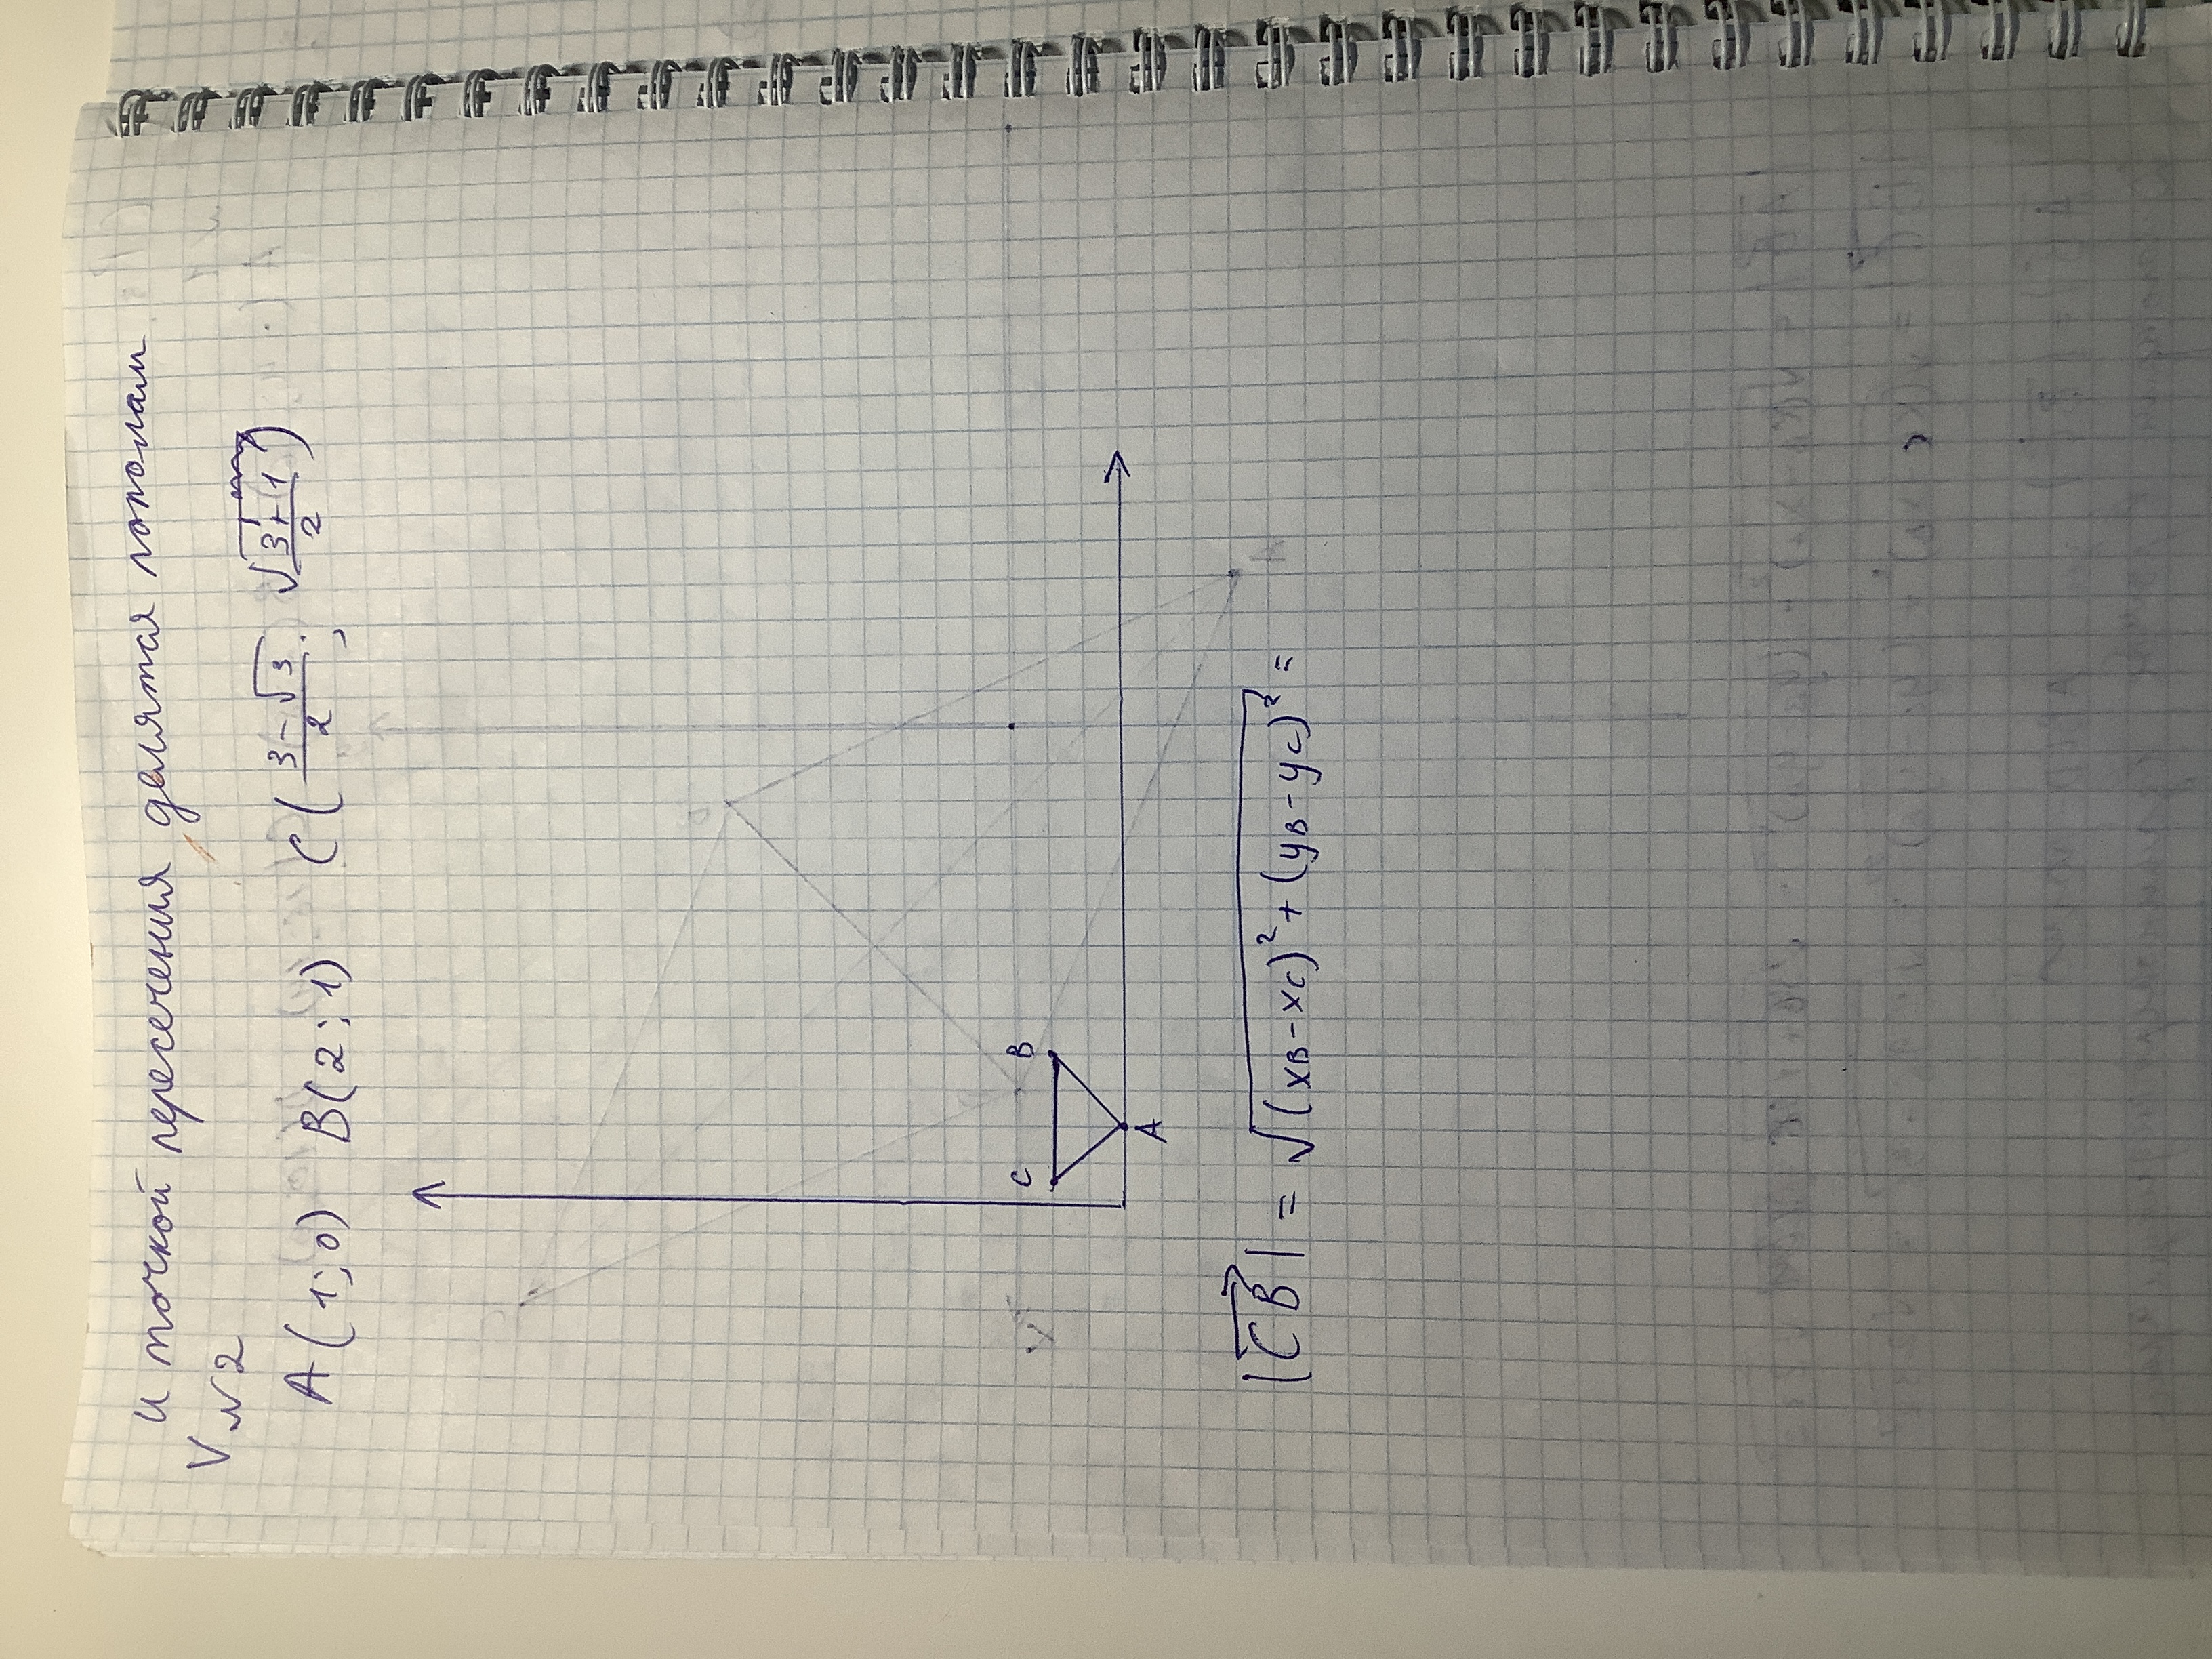 и точкой пересечения делятся пополам
V №2
A(1;0) B(2;1) C((3-√3)/2; √(3+1)/2)
C B
A
|CB| = √((xB-xC)²+(yB-yC)²) =